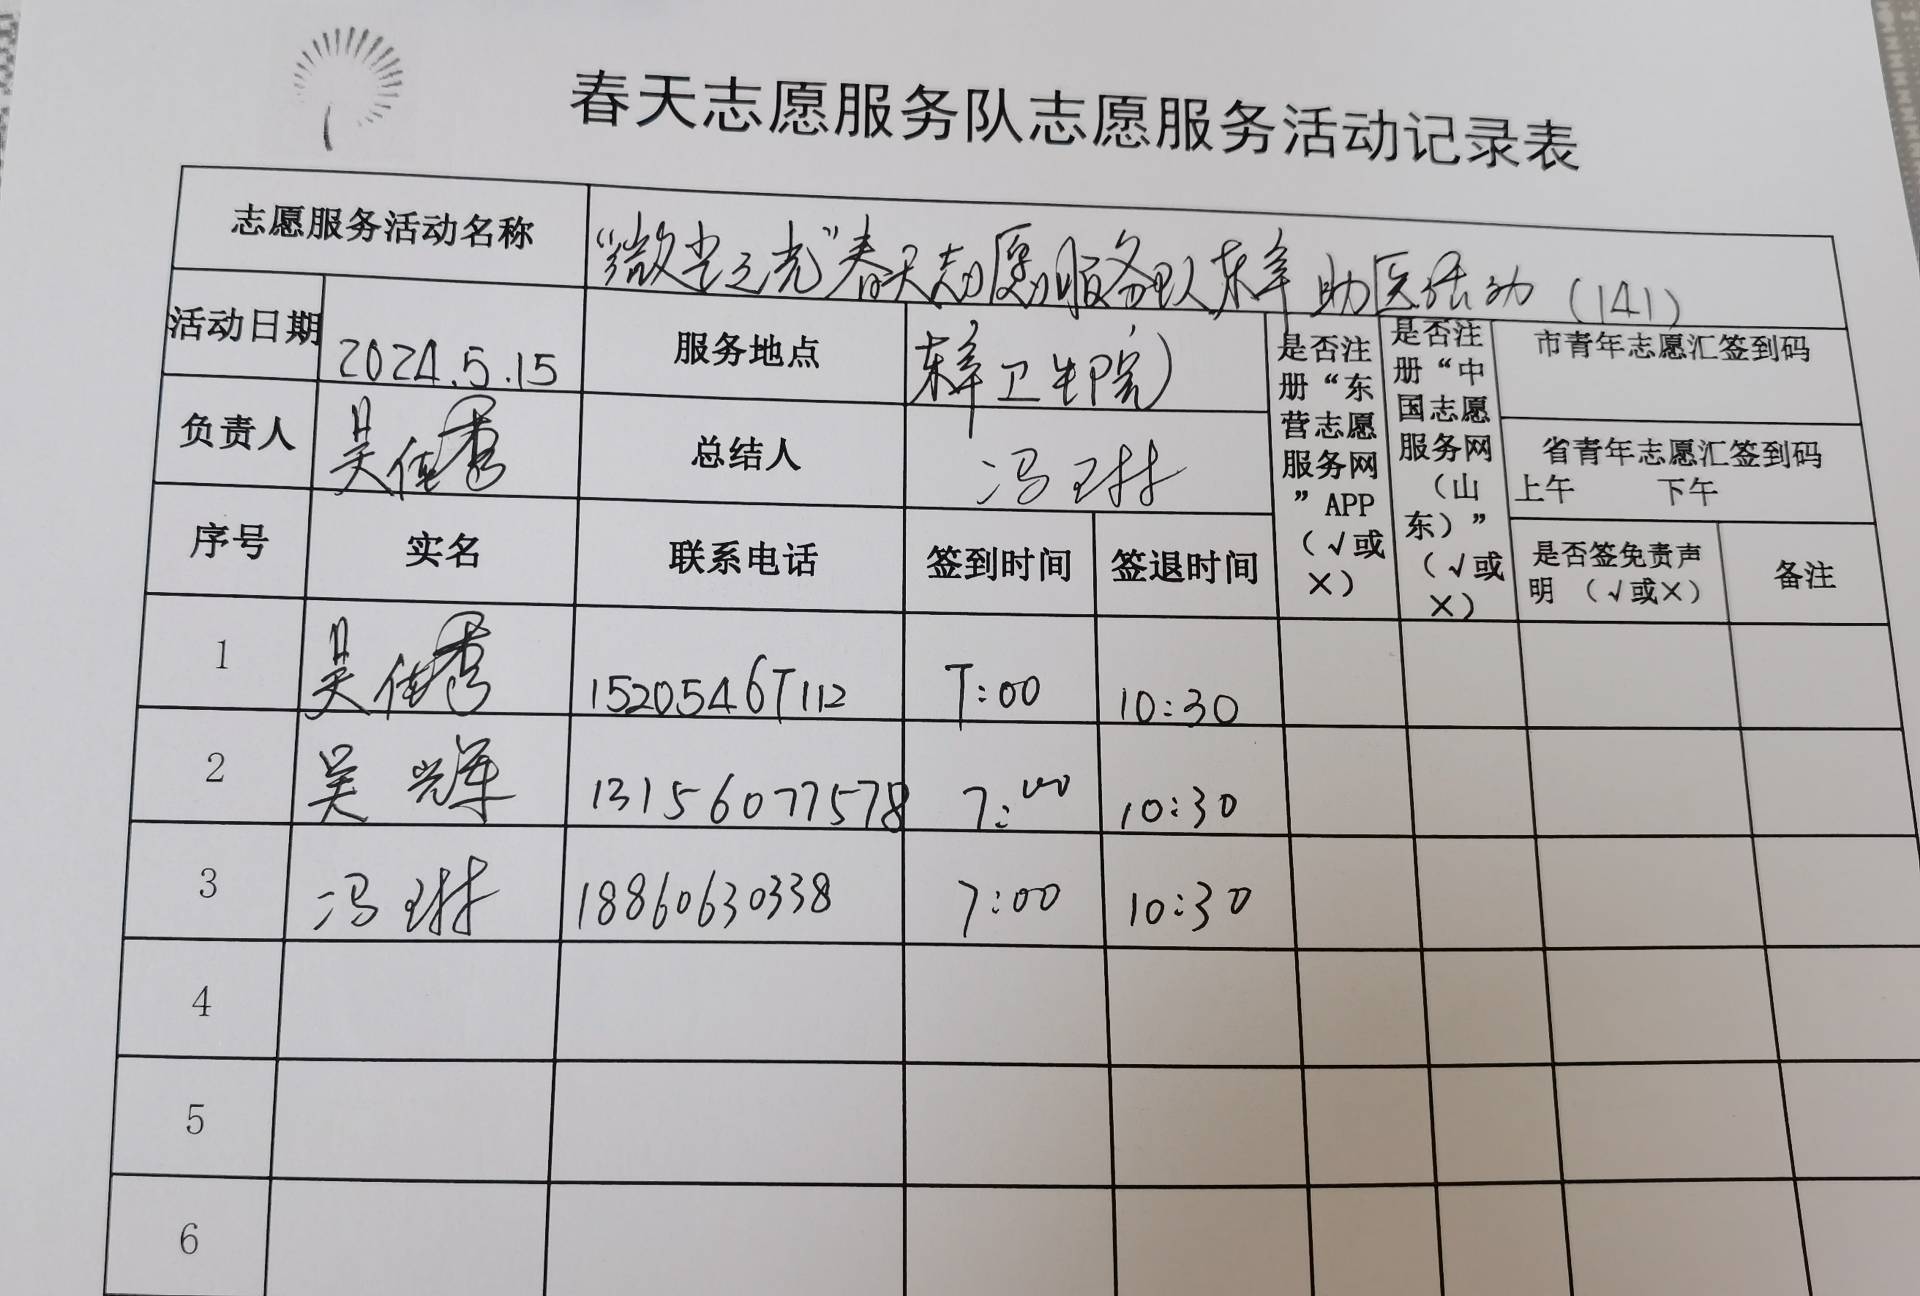 春天志愿服务队志愿服务活动记录表
志愿服务活动名称 “微尘之光”春天志愿服务队东辛助医活动（141）
活动日期 2024.5.15 服务地点 东辛卫生院
是否注册“东营志愿服务网”APP（√或×）
是否注册“中国志愿服务网（山东）”（√或×）
市青年志愿汇签到码
负责人 吴佳秀 总结人 冯琳
省青年志愿汇签到码
上午 下午
序号 实名 联系电话 签到时间 签退时间 是否签免责声明（√或×） 备注
1 吴佳秀 15205467112 7:00 10:30
2 吴辉 13156077578 7:00 10:30
3 冯琳 18860630338 7:00 10:30
4
5
6